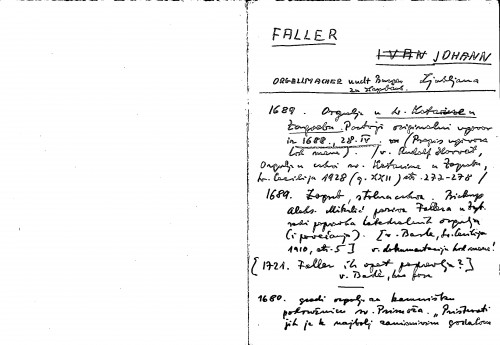 FALLER
IVAN JOHANN
ORGELLMACHER unndt Burger Ljubljana
zu Laybach.
1689. Orgulje u sv. Katarine u
Zagrebu. Postoji originalni ugovor
iz 1688, 28. IV. (Prepis ugovora
kod mene). /v. Rudolf Horvat,
Orgulje u crkvi sv. Katarine u Zagrebu,
sv. Cecilija 1928 (g. XXII) str. 272-278 /
1689. Zagreb, stolna crkva. Biskup
Aleks. Mikulić poziva Fallera
popravka katedralnih orgulja
(i povećanja). [v. Barlè, sv. Cecilija
1910, str. 5] v. dokumentacija kod mene!
[1721. Faller ih opet popravlja?]
v. Barlè,
1680. gradi orgulje za kamnišku
podružnicu sv. Primoža. "Prištevati
jih je k najbolj zanimivim godalom